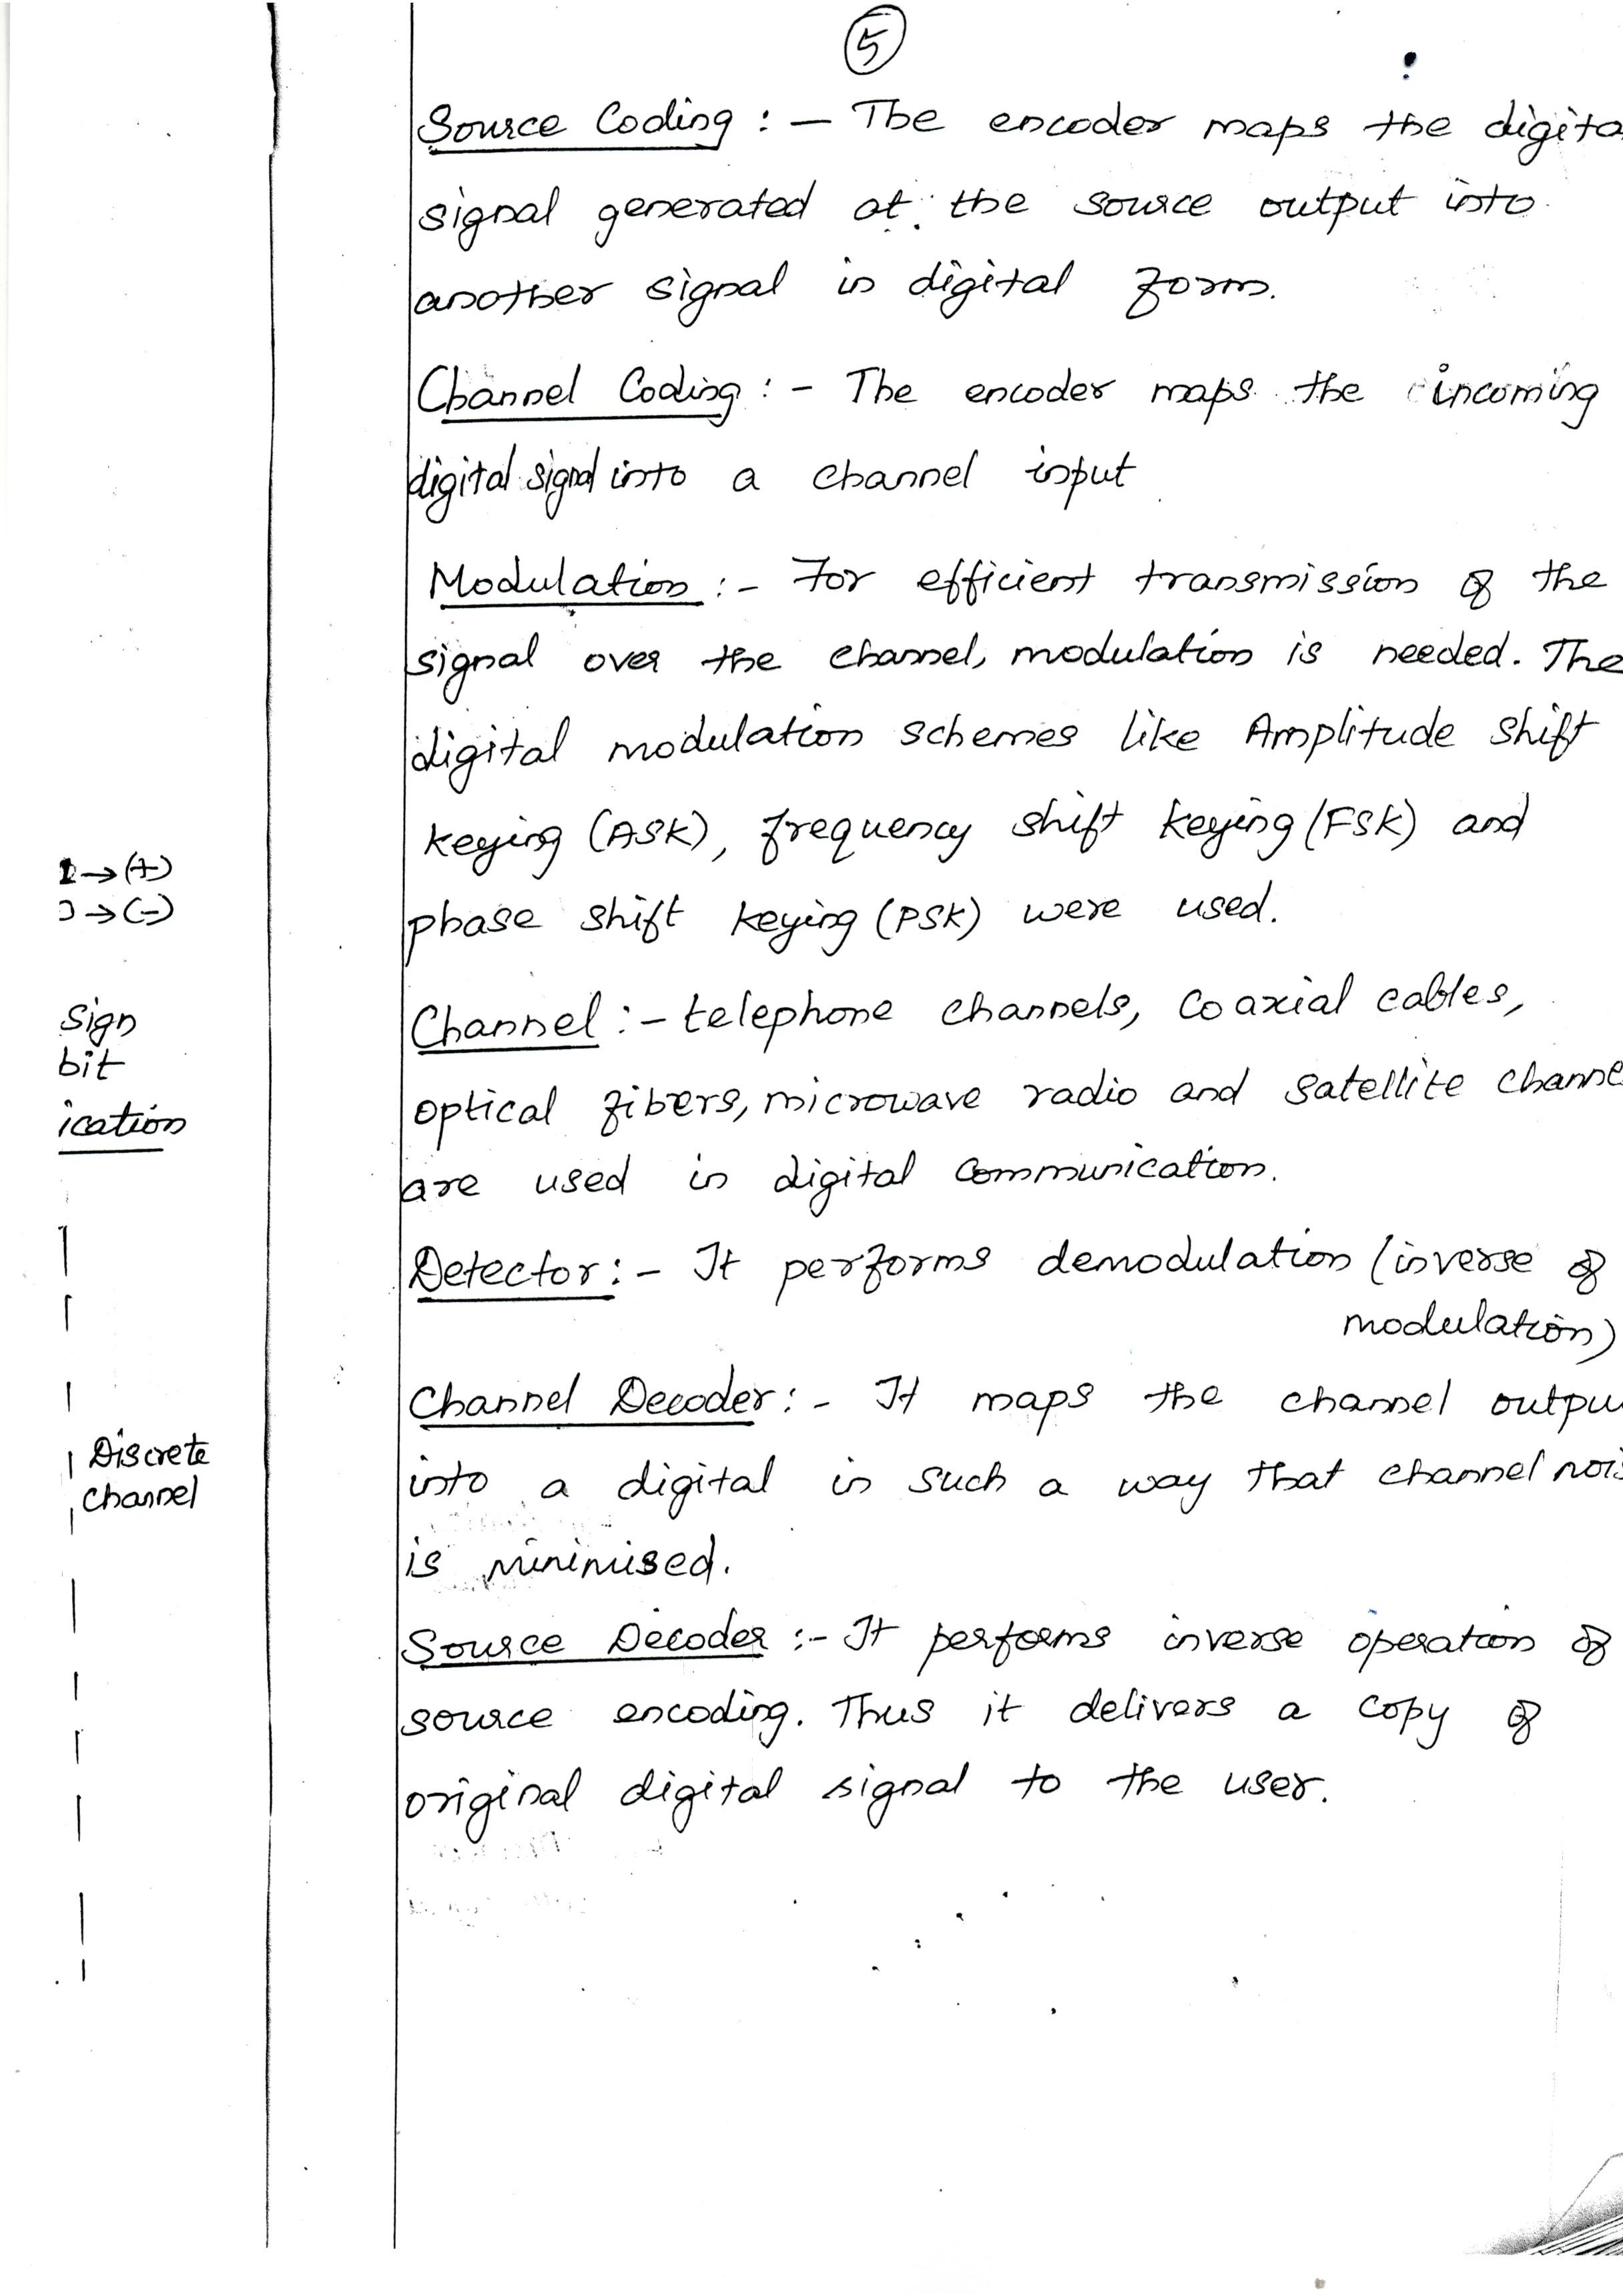 5
Source Coding : — The encoder maps the digita
signal generated at the source output into
another signal in digital form.
Channel Coding : - The encoder maps the incoming
digital signal into a channel input
Modulation : - For efficient transmission of the
signal over the channel, modulation is needed. The
digital modulation schemes like Amplitude shift
keying (ASK), frequency shift keying (FSK) and
phase shift keying (PSK) were used.
Channel : - telephone channels, coaxial cables,
optical fibers, microwave radio and satellite channe
are used in digital communication.
Detector : - It performs demodulation (inverse of
modulation)
Channel Decoder : - It maps the channel outpu
into a digital in such a way that channel nois
is minimised.
Source Decoder :- It performs inverse operation of
source encoding. Thus it delivers a copy of
original digital signal to the user.
1 → (+)
→ (-)
sign
bit
ication
Discrete
channel